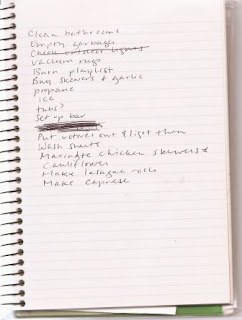 Clean bathrooms
Empty garbage
Check outdoor lights
Vacuum rugs
Burn playlist
Buy skewers & garlic
propane
ice
tubs?
Set up bar
Put votives out & light them
Wash sheets
Marinate chicken skewers &
Cauliflower
Make lasagna rolls
Make caprese